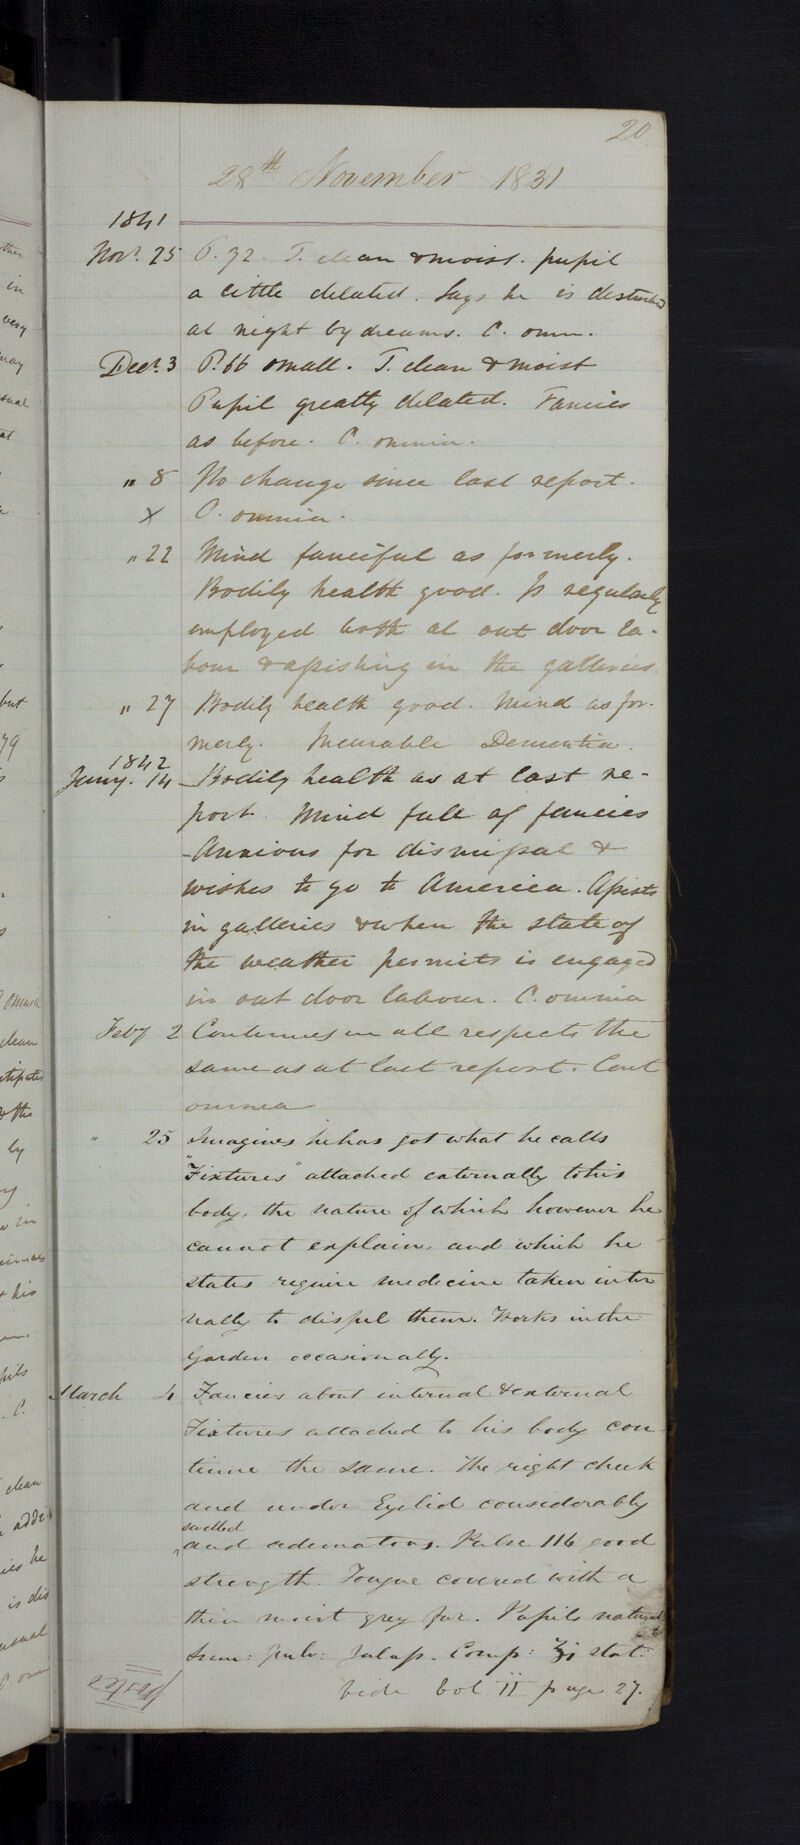 20
28th November 1831
1841
Novr. 25 P. 72. T. clean & moist. pupil
a little delated. Says he is disturbed
at night by dreams. C. omn.
Decr. 3 P. 66 small. T. clean & moist
Pupil greatly delated. Fancies
as before. C. omnia.
" 8 No change since last report.
x C. omnia.
" 22 Mind fanciful as formerly.
Bodily health good. Is regularly
employed both at out door la-
bour & assisting in the galleries.
" 27 Bodily health good. Mind as for-
merly. Incurable Dementia.
1842
Jany. 14 Bodily health as at last re-
port. Mind full of fancies
Anxious for dismissal &
wishes to go to America. Assists
in galleries & when the state of
the weather permits is engaged
in out door labour. C. omnia
Feby 2 Continues in all respects the
same as at last report. Cont
omnia
" 25 Imagines he has got what he calls
"Fixtures" attached externally to his
body, the nature of which however he
cannot explain, and which he
states require medicine taken inter
nally to dispel them. Works in the
Garden occasionally.
March 4 Fancies about internal & external
Fixtures attached to his body con
tinue the same. The right cheek
and under Eyelid considerably
swelled
and œdematous. Pulse 116 good
strength. Tongue covered with a
thin moist grey fur. Pupils natural
Sum: Pulv: Jalap. Comp: ʒj stat:
Vide Vol II page 27.